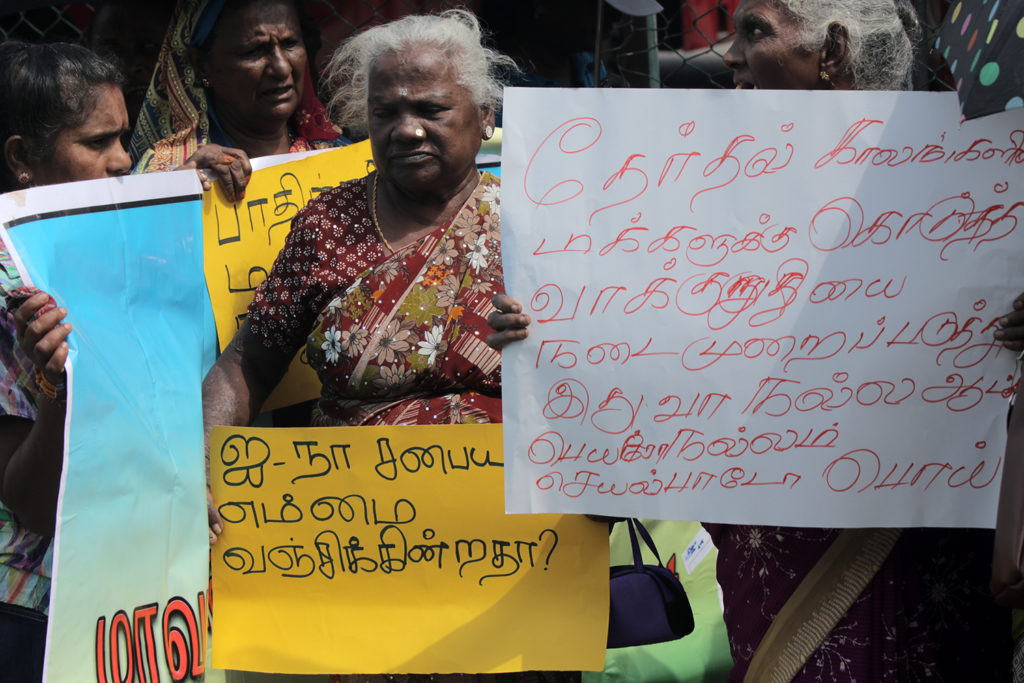 பாதி
ம
தேர்தல் காலங்களில்
மக்களுக்கு கொடுத்த
வாக்குறுதியை
நடைமுறைப்படுத்து
இதுவா நல்ல ஆட்
பெயரோ நல்லம்
செயல்பாடோ பொய்
ஐ-நா சபைய
எம்மை
வஞ்சிக்கின்றதா?
மாவ